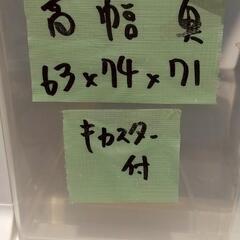 高 幅 奥
63×74×71
キャスター
付